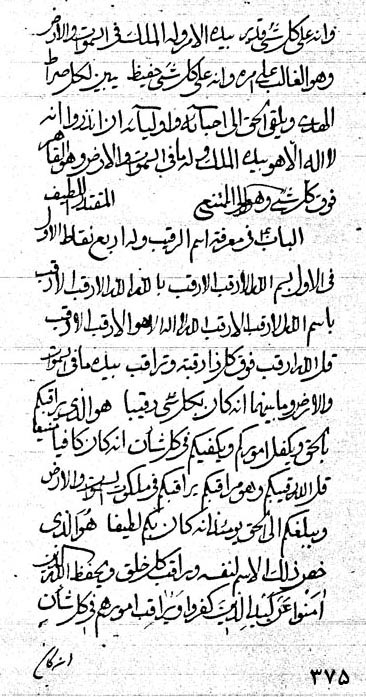 وانه على كل شئ قدير بيده الامر وله الملك فى السموات والارض
وهو الغالب على امره وانه على كل شئ حفيظ يبين لكل صراط
الهدى ويلقى الحق الى احبائه واوليائه ان انذروا انه
لا اله الا هو بيده الملك وله ما فى السموات والارض وهو القاهر
فوق كل شئ وهو الممتنع المقتدر اللطيف
الباب فى معرفة اسم الرقب وله اربع نقاط الاول
فى الاول بسم الله الارقب الارقب بالله الله الارقب الارقب
باسم الله الارقب الارقب الله لا اله الا هو الارقب الارقب
قل الله ارقب فوق كل ذا رقبة وتراقب بيده ما فى السموات
والارض وما بينهما انه كان بكل شئ رقيبا هو الذى يراقبكم
بالحق ويكفل اموركم ويكفيكم فى كل شأن انه كان كافيا
قل الله رقيبكم وهو مراقبكم يراقبكم فى ملكوت السموات والارض
ويبلغكم الى الحق انه كان بكم لطيفا هو الذى
ذلك الاسم لنفسه ويراقب كل خلق ويحفظ الذين
امنوا عن كيد الذين كفروا ويراقب امورهم فى كل شأن
انه كان
٣٧۵